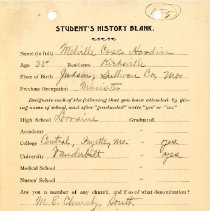 155
STUDENT'S HISTORY BLANK.
Name (in full) Melville Cox Hardin
Age 35 Residence Kirksville
Place of Birth Judson, Sullivan Co, Mo.
Previous Occupation Minister
Designate each of the following that you have attended by giving name of school, and after "graduated" write "yes" or "no."
High School Lorraine Graduated
Academy
College Central, Fayette, Mo. " yes
University Vanderbilt " yes
Medical School "
Nurses' School "
Are you a member of any church, and if so of what denomination?
M. E. Church, South